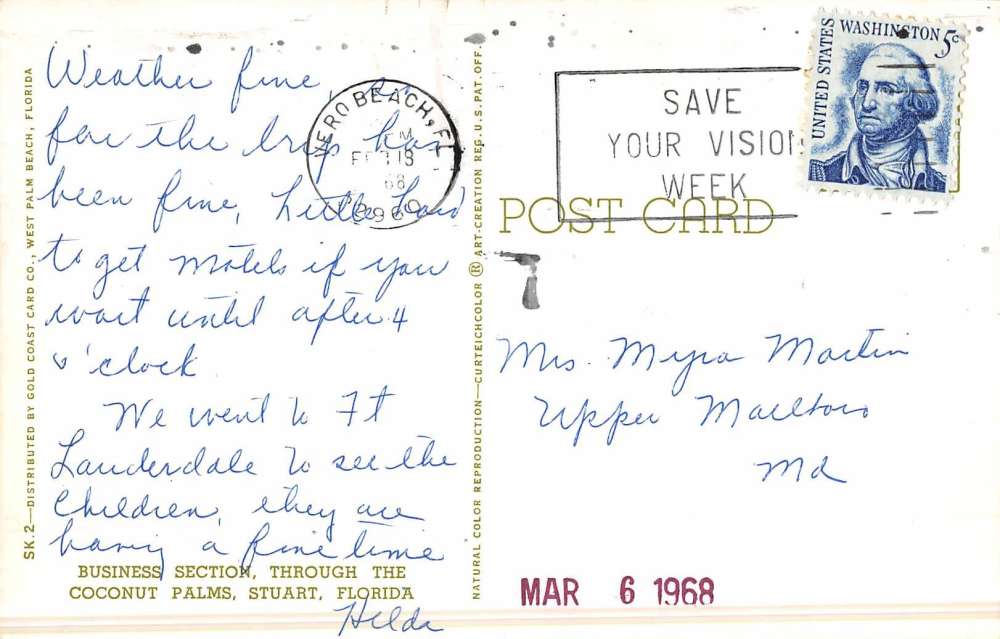 Weather fine, so
far the trip has
been fine, Little hard
to get motels if you
wait until after 4
o'clock
We went to Ft
Lauderdale to see the
Children, they are
having a fine time
Hilda
BUSINESS SECTION, THROUGH THE
COCONUT PALMS, STUART, FLORIDA
SK.2—DISTRIBUTED BY GOLD COAST CARD CO., WEST PALM BEACH, FLORIDA
NATURAL COLOR REPRODUCTION—CURTEICHCOLOR ® ART-CREATION REG. U.S. PAT. OFF.
VERO BEACH, FL
PM
18
68
32960
SAVE
YOUR VISION
WEEK
UNITED STATES
WASHINGTON 5c
POST CARD
Mrs. Myra Martin
Upper Marlboro
Md
MAR 6 1968